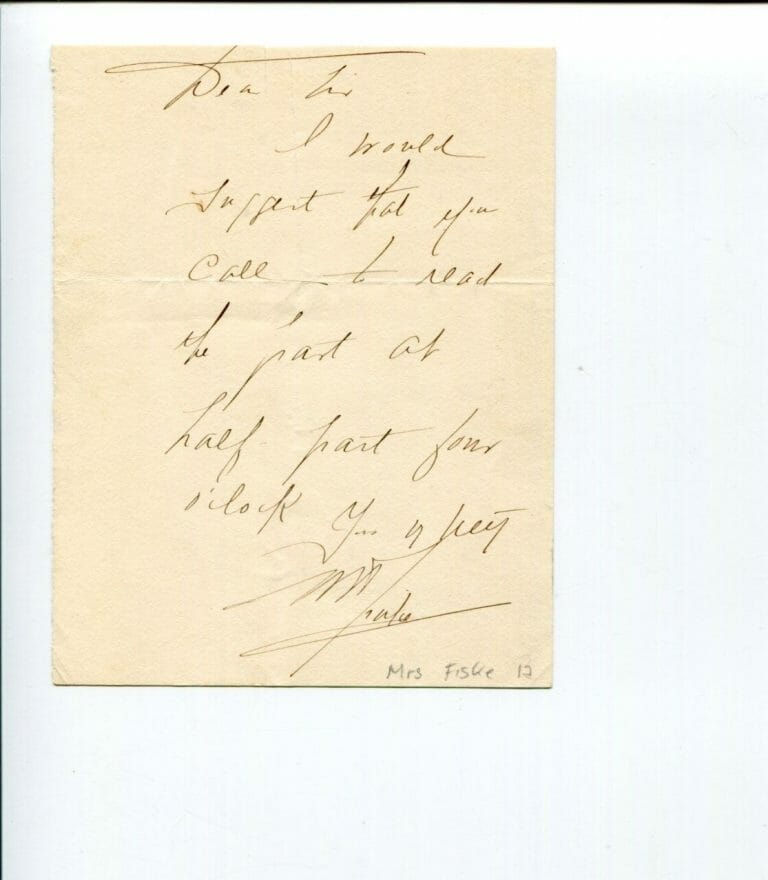 Dear Sir
I would
suggest that you
call to read
the part at
half past four
o'clock
Mrs Fiske 12